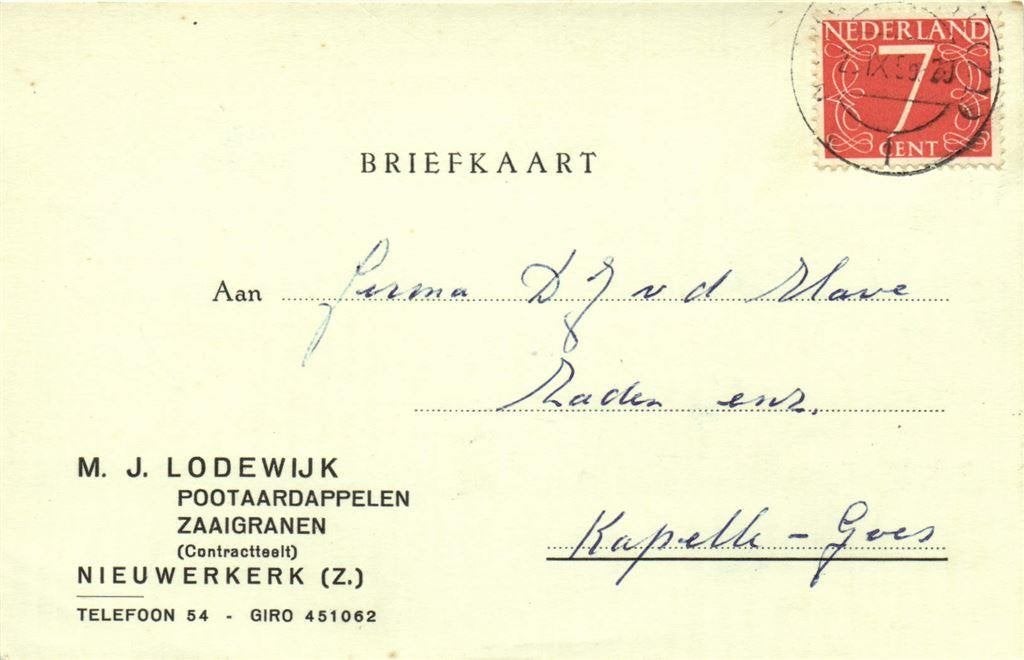 NEDERLAND
7
CENT
BRIEFKAART
Aan Firma D J v d Have
Zaden enz.
Kapelle - Goes
M. J. LODEWIJK
POOTAARDAPPELEN
ZAAIGRANEN
(Contractteelt)
NIEUWERKERK (Z.)
TELEFOON 54 - GIRO 451062